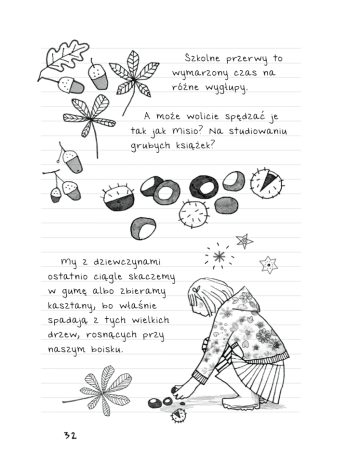 Szkolne przerwy to
wymarzony czas na
różne wygłupy.
A może wolicie spędzać je
tak jak Misio? Na studiowaniu
grubych książek?
My z dziewczynami
ostatnio ciągle skaczemy
w gumę albo zbieramy
kasztany, bo właśnie
spadają z tych wielkich
drzew, rosnących przy
naszym boisku.
32